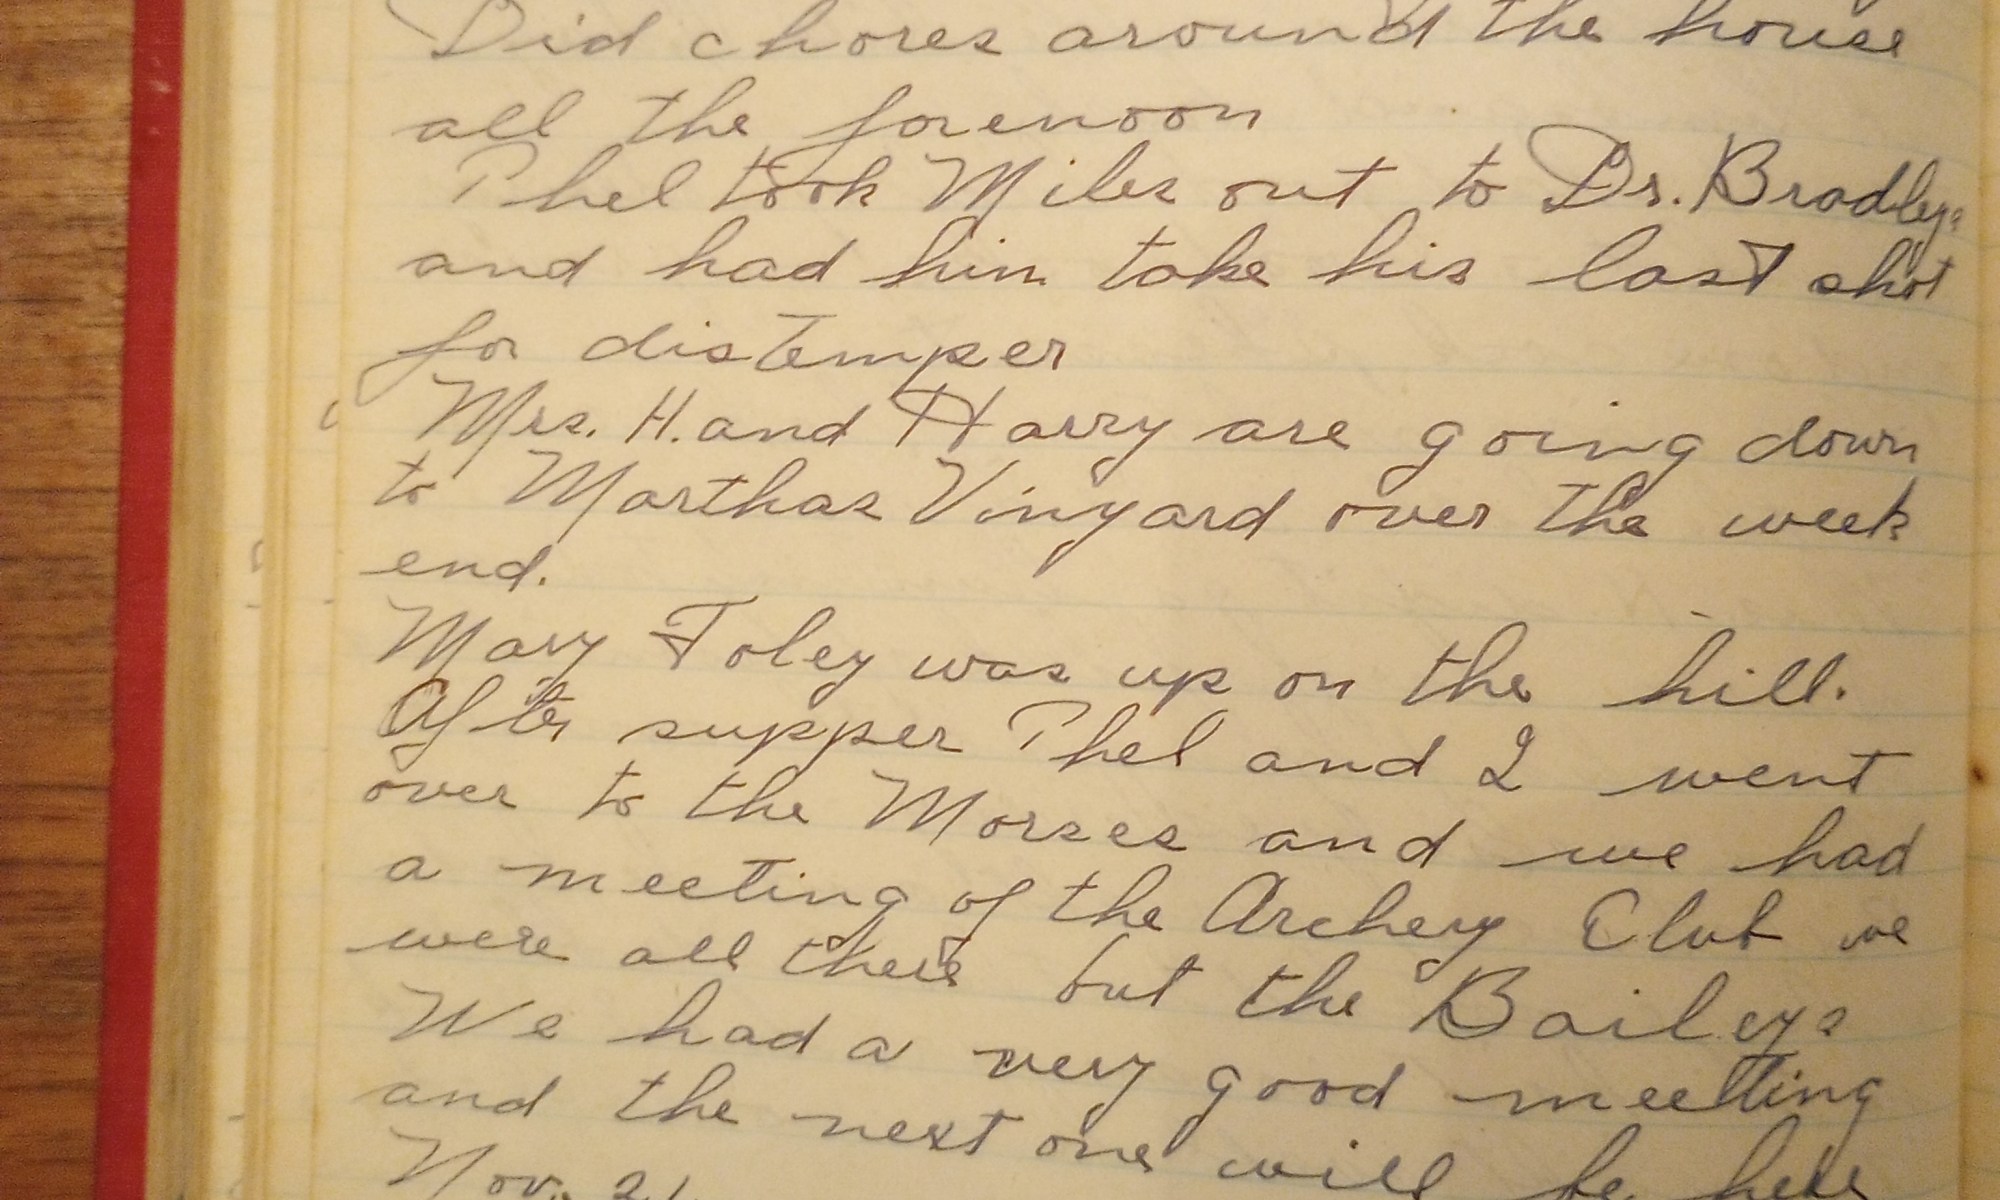 Did chores around the house
all the forenoon
Phel took Miles out to Dr. Bradleys
and had him take his last shot
for distemper
Mrs. H. and Harry are going down
to Marthas Vinyard over the week
end.
Mary Foley was up on the hill.
After supper Phel and I went
over to the Morses and we had
a meeting of the Archery Club we
were all there but the Baileys
We had a very good meeting
and the next one will be here
Nov. 21